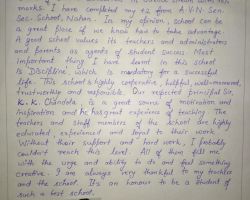 marks. I have completed my +2 from A.V.N. Sen.
Sec. School, Nahan. In my opinion, school can be
a great place if we know how to take advantage.
A good school values its teachers and administrators
and parents as agents of student success. Most
important thing I have learnt in this school
is DISCIPLINE, which is mandatory for a successful
life. This school is highly cooperative, faithful, well-mannered,
trustworthy and responsible. Our respected principal Sir,
K.K. Chandola is a great source of motivation and
inspiration and he has great experience of teaching. The
teachers and staff members of the school are highly
educated, experienced and loyal to their work.
Without their support and hard work, I probably
couldn't reach this level. All of them fill me
with the urge and ability to do and feel something
creative. I am always very thankful to my teachers
and the school. It's an honour to be a student of
such a best school.